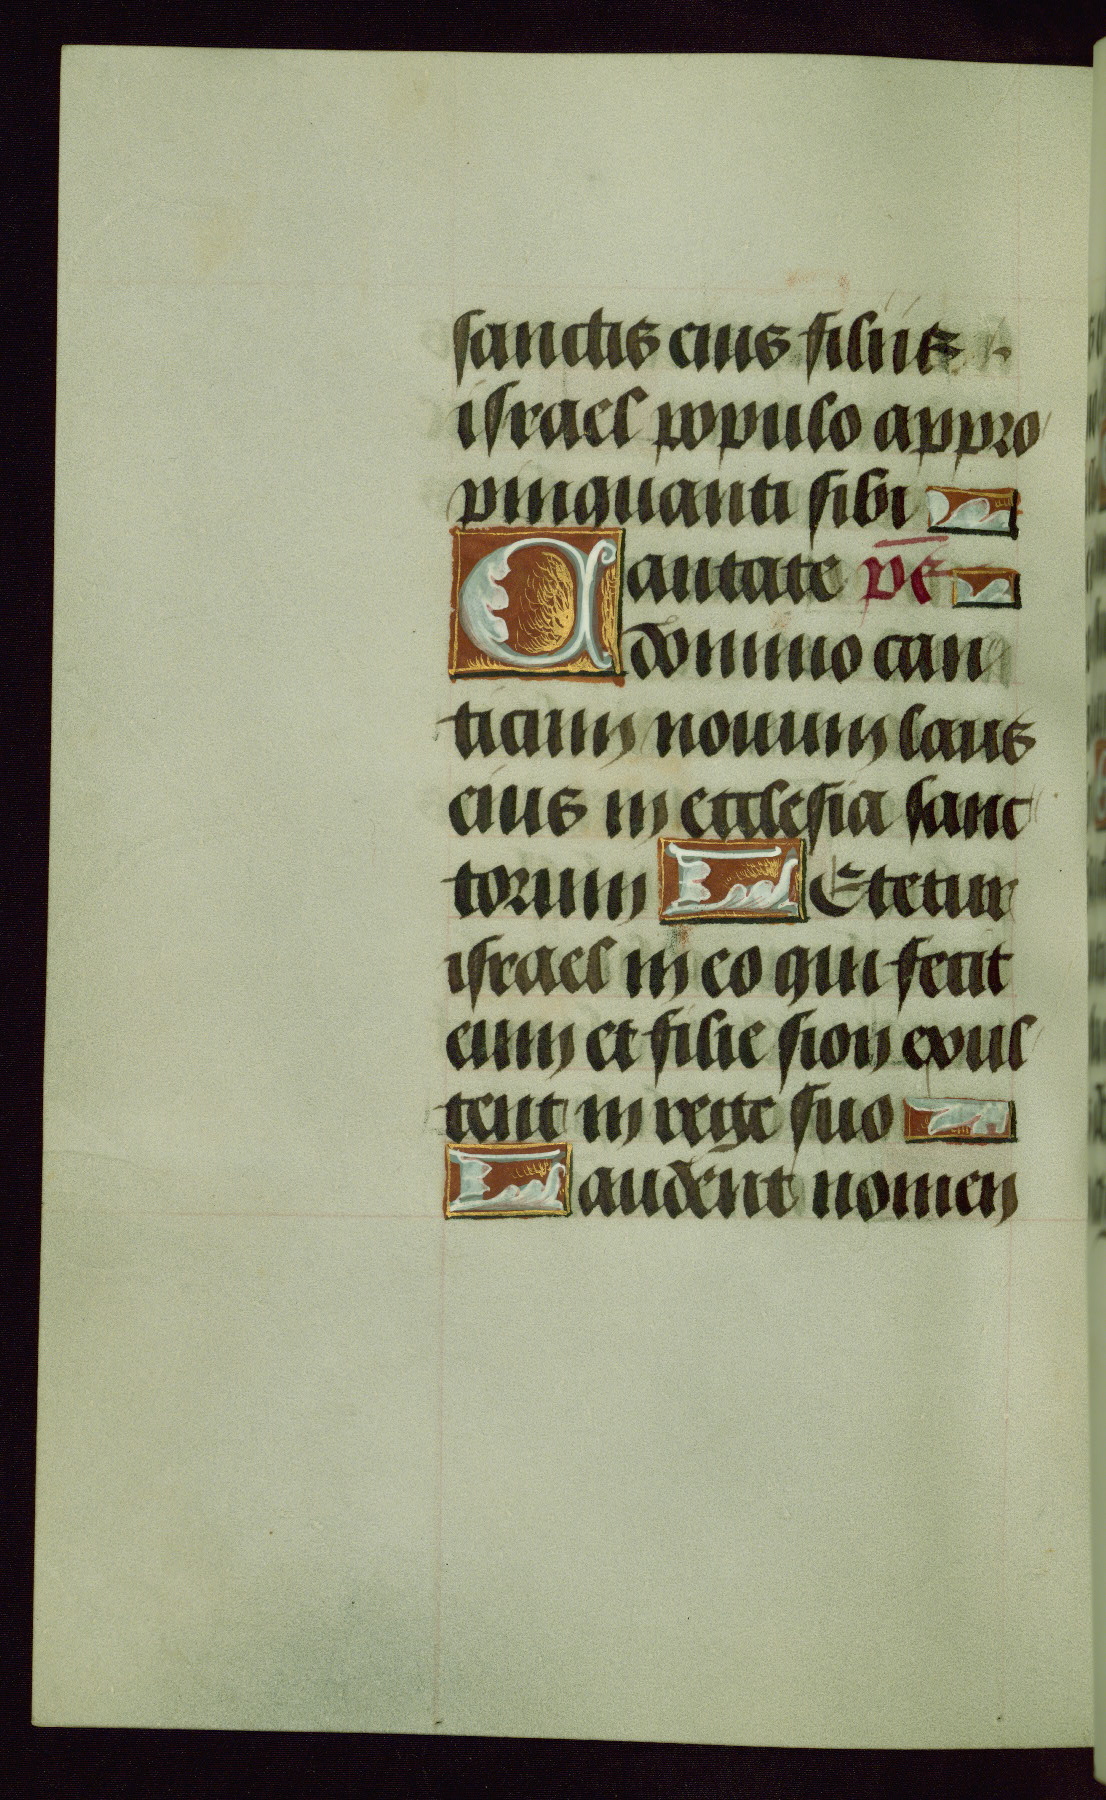 sanctis eius filiis
israel populo appro
pinquanti sibi
Cantate ps̄
domino can
ticum nouum laus
eius in ecclesia sanc
torum Letetur
israel in eo qui fecit
eum et filie sion exul
tent in rege suo
Laudent nomen